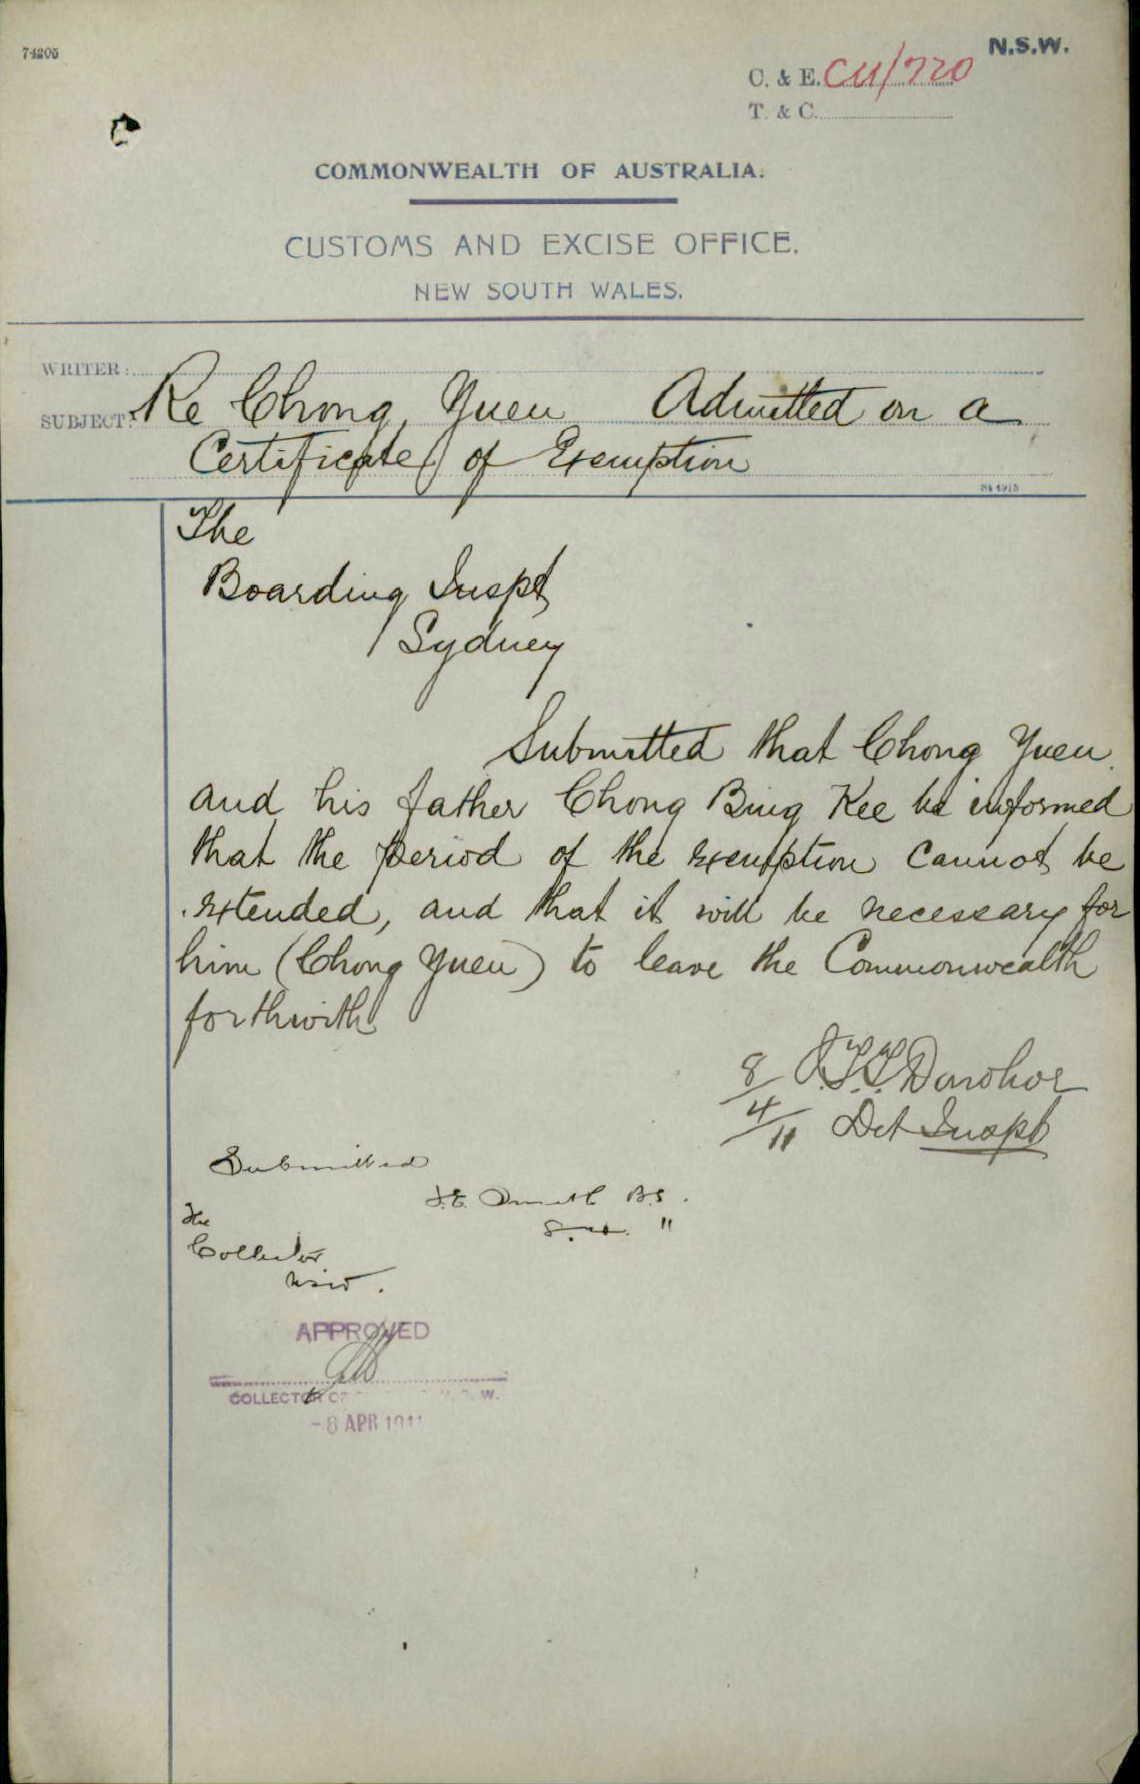 74205
N.S.W.
C. & E. C11/720
T. & C.
COMMONWEALTH OF AUSTRALIA.
CUSTOMS AND EXCISE OFFICE.
NEW SOUTH WALES.
WRITER:
SUBJECT: Re Chong Yuen Admitted on a
Certificate of Exemption
The
Boarding Inspr
Sydney
Submitted that Chong Yuen
and his father Chong Bing Kee be informed
that the period of the exemption cannot be
extended, and that it will be necessary for
him (Chong Yuen) to leave the Commonwealth
forthwith
8/4/11 J.T.T. Donohoe
Det Inspr
Submitted
B.I.
8.4.11
The
Collector
NSW.
APPROVED
COLLECTOR OF W.
-8 APR 1911